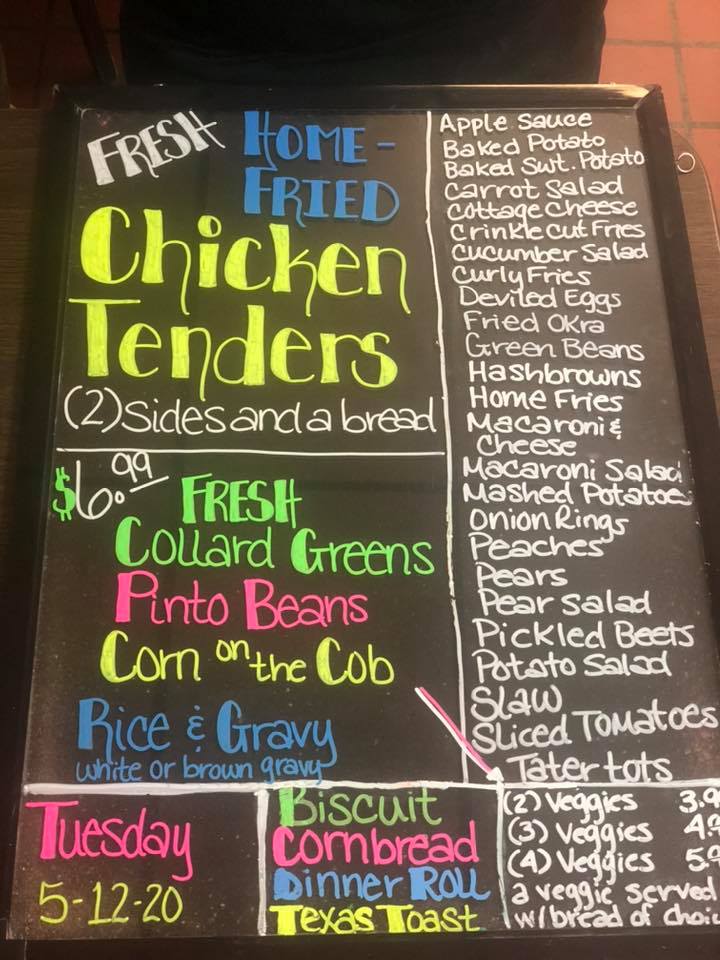 FRESH HOME-
FRIED
Chicken
Tenders
(2) Sides and a bread
$6.99
FRESH
Collard Greens
Pinto Beans
Corn on the Cob
Rice & Gravy
white or brown gravy
Apple Sauce
Baked Potato
Baked Swt. Potato
Carrot Salad
Cottage Cheese
Crinkle Cut Fries
Cucumber Salad
Curly Fries
Deviled Eggs
Fried Okra
Green Beans
Hashbrowns
Home Fries
Macaroni &
Cheese
Macaroni Salad
Mashed Potatoes
Onion Rings
Peaches
Pears
Pear Salad
Pickled Beets
Potato Salad
Slaw
Sliced Tomatoes
Tater tots
Tuesday
5-12-20
Biscuit
Cornbread
Dinner Roll
Texas Toast
(2) Veggies 3.9
(3) Veggies 4.9
(4) Veggies 5.9
a veggie served
w/ bread of